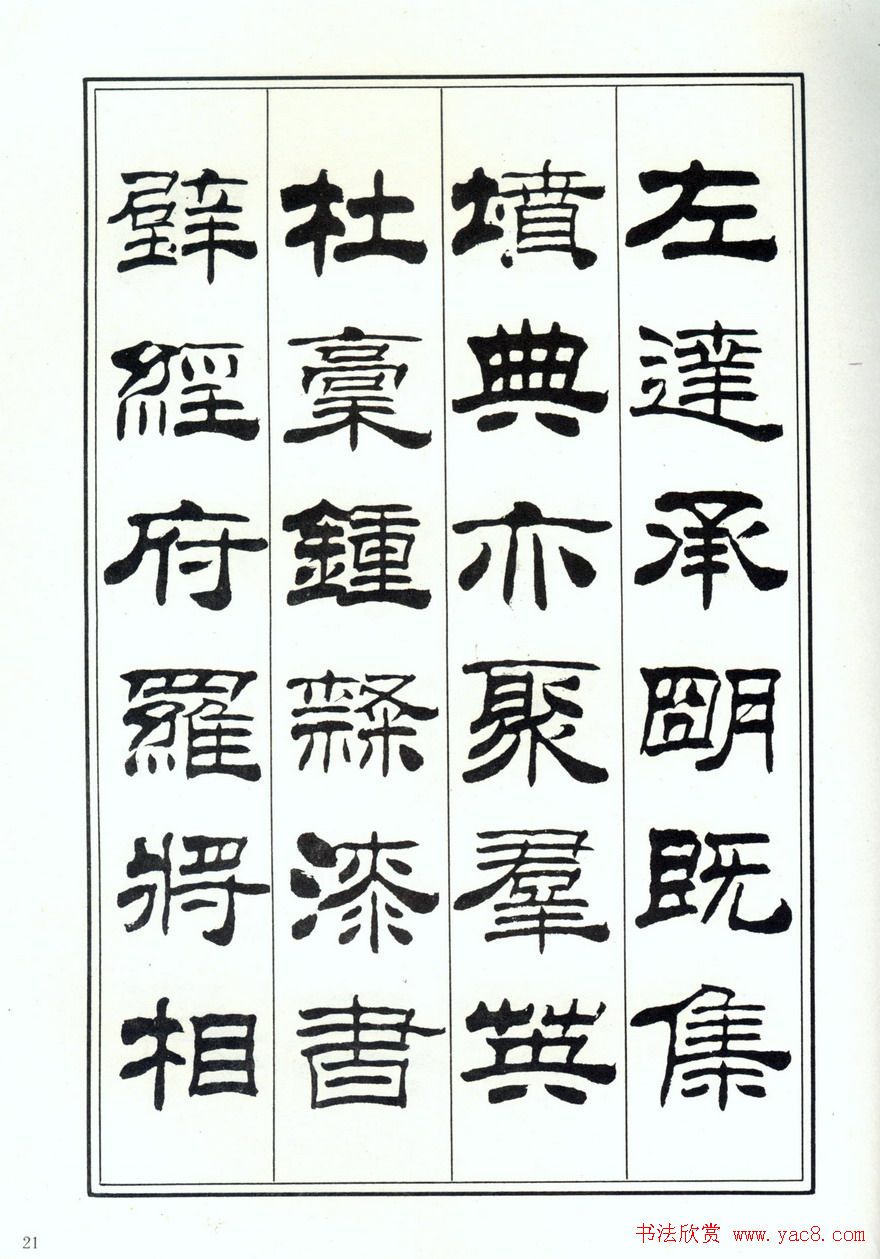 左達承明既集
墳典亦聚羣英
杜稾鍾隸漆書
壁經府羅將相
21
书法欣赏 www.yac8.com